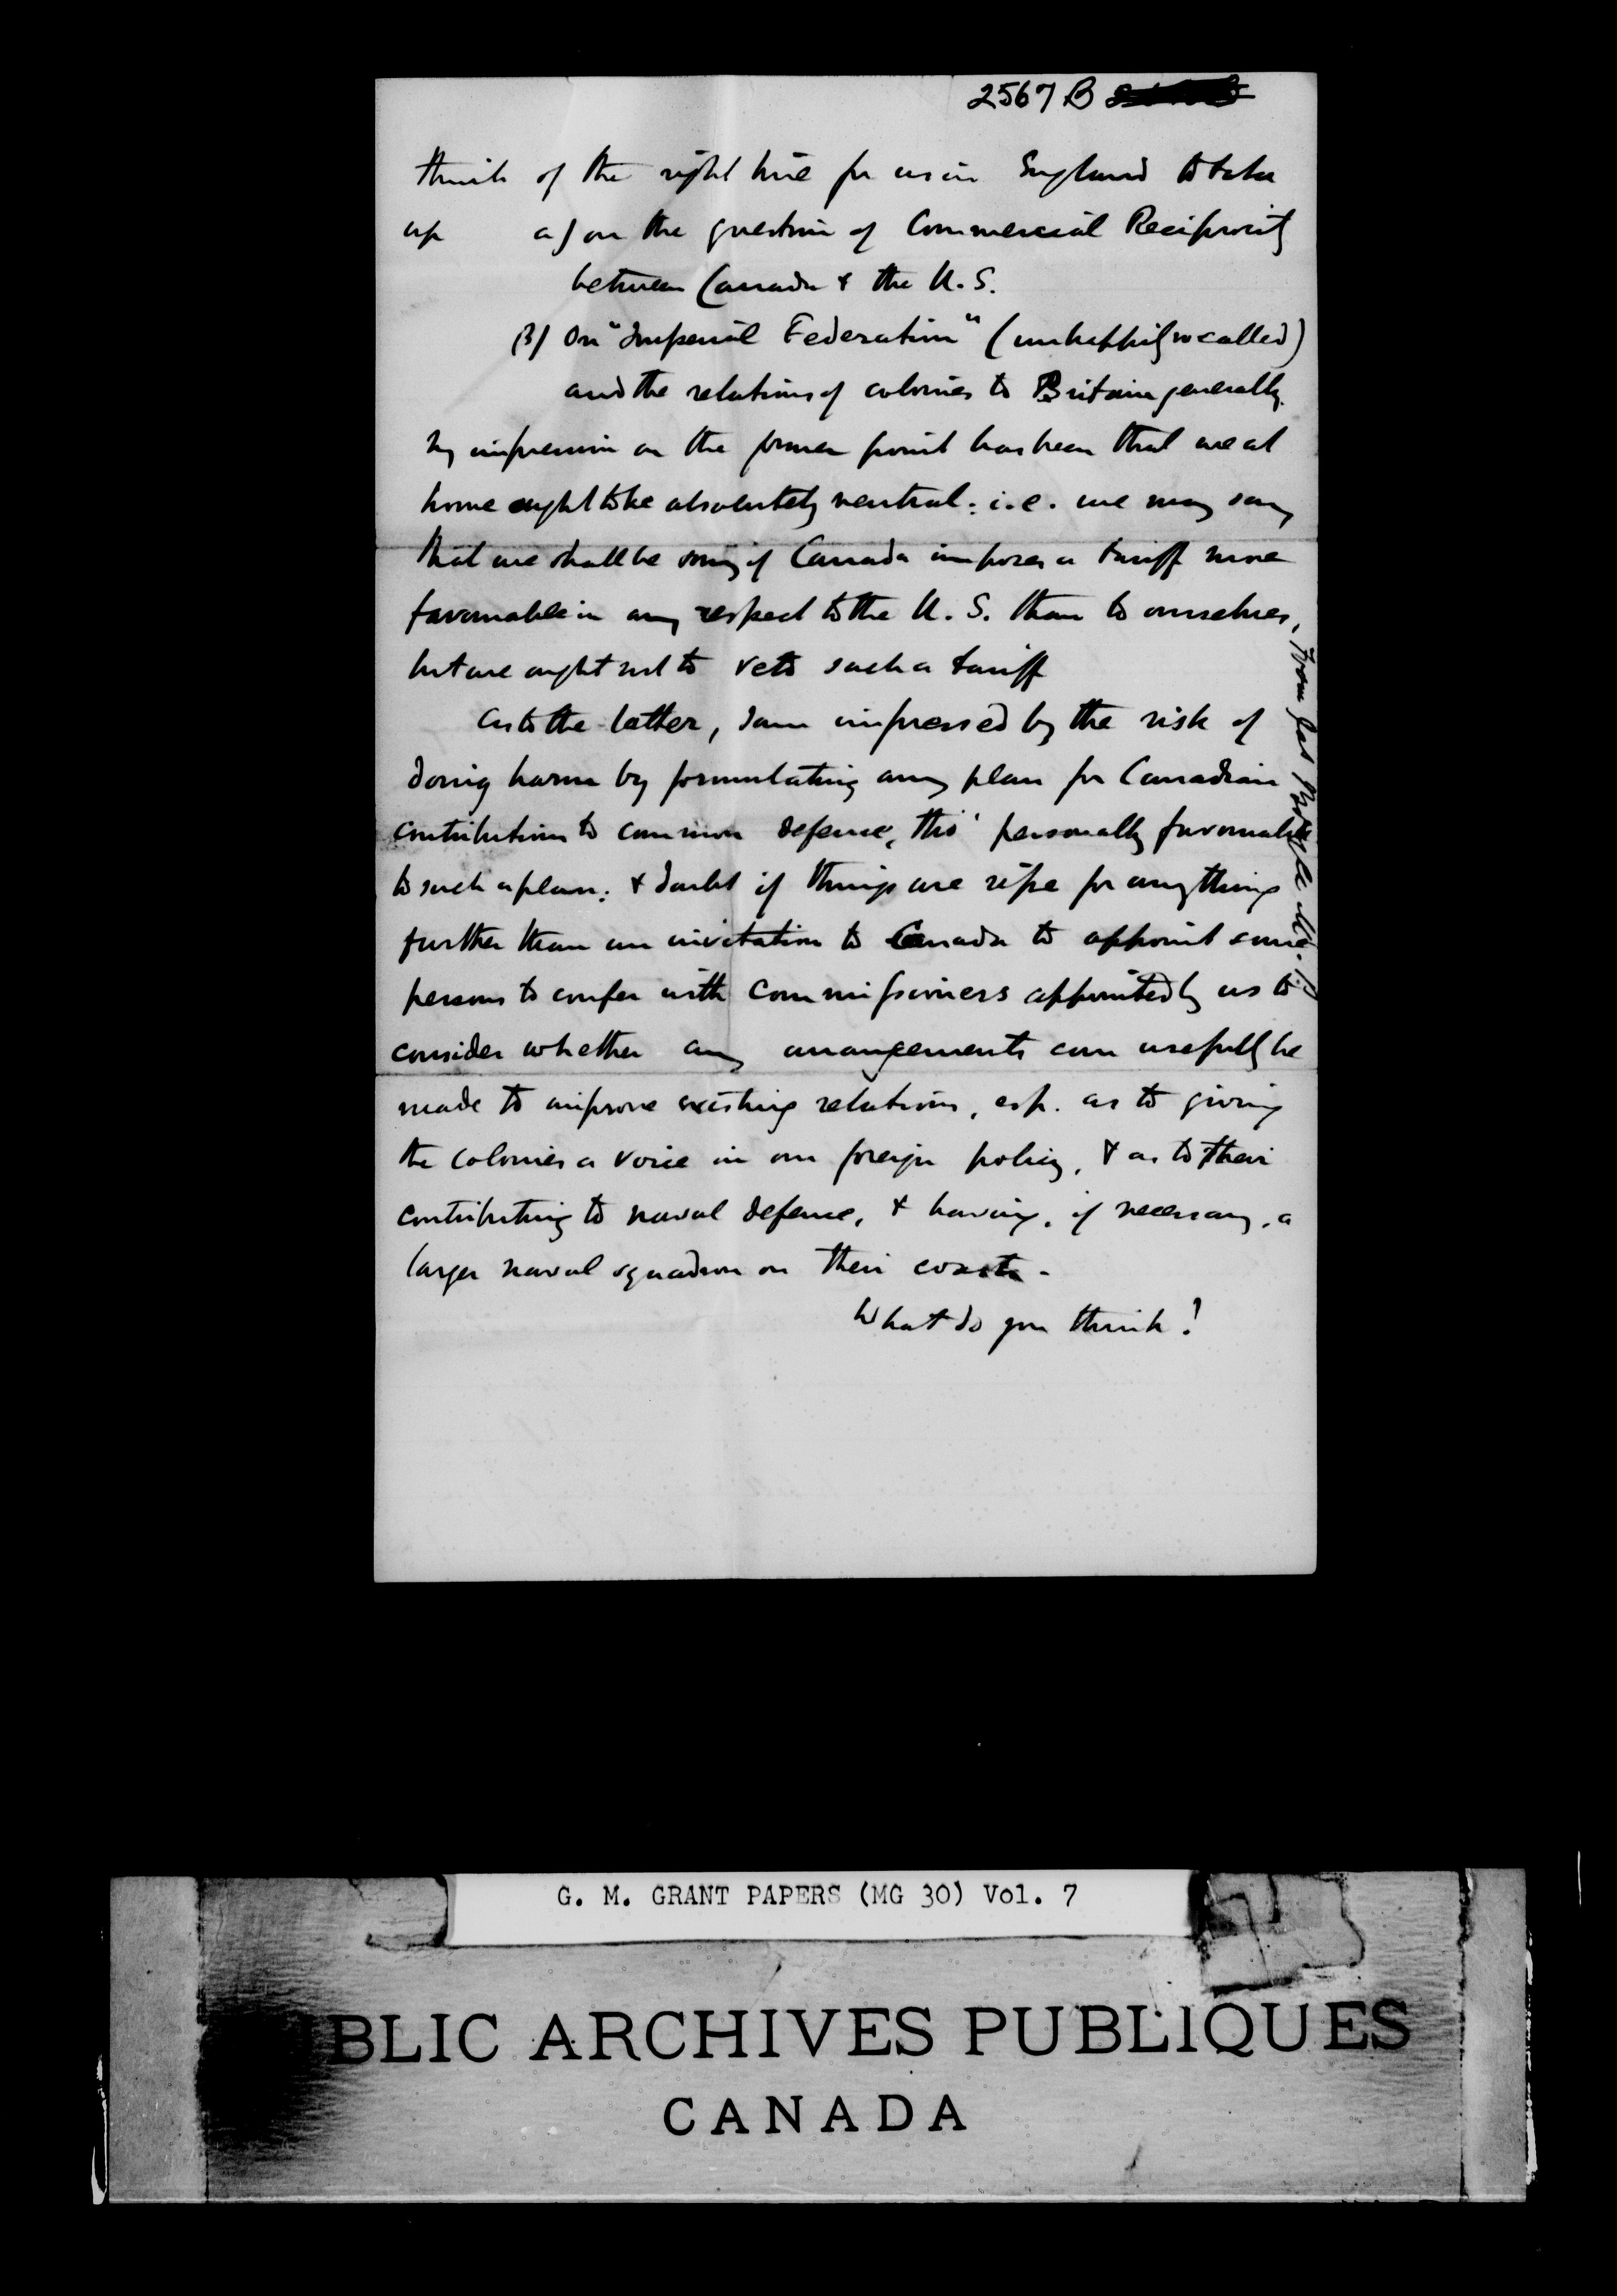 2567 B
think of the right line for us in England to take
up a) on the question of Commercial Reciprocity
between Canada & the U.S.
β) On "Imperial Federation" (unhappily so called)
and the relations of colonies to Britain generally.
My impression on the former point has been that we at
home ought to be absolutely neutral: i.e. we may say
that we shall be sorry if Canada imposes a tariff more
favourable in any respect to the U.S. than to ourselves,
but we ought not to veto such a tariff
As to the latter, I am impressed by the risk of
doing harm by formulating any plan for Canadian
contributions to common defence, tho' personally favourable
to such a plan: & doubt if things are ripe for anything
further than an invitation to Canada to appoint some
persons to confer with Commissioners appointed by us to
consider whether any arrangements can usefully be
made to improve existing relations, esp. as to giving
the colonies a voice in our foreign policy, & as to their
contributing to naval defence, & having, if necessary, a
larger naval squadron on their coasts.
What do you think?
From Jas Bryce M.P.
G. M. GRANT PAPERS (MG 30) Vol. 7
BLIC ARCHIVES PUBLIQUES
CANADA